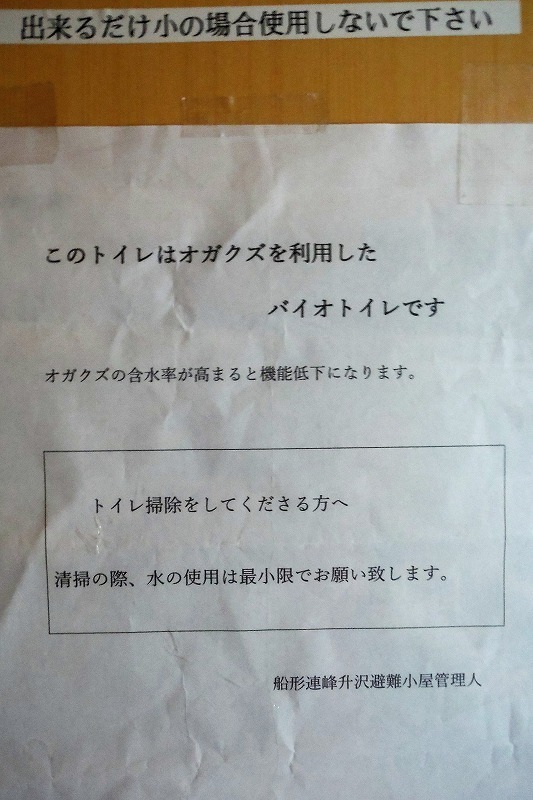 出来るだけ小の場合使用しないで下さい
このトイレはオガクズを利用した
バイオトイレです
オガクズの含水率が高まると機能低下になります。
トイレ掃除をしてくださる方へ
清掃の際、水の使用は最小限でお願い致します。
船形連峰升沢避難小屋管理人